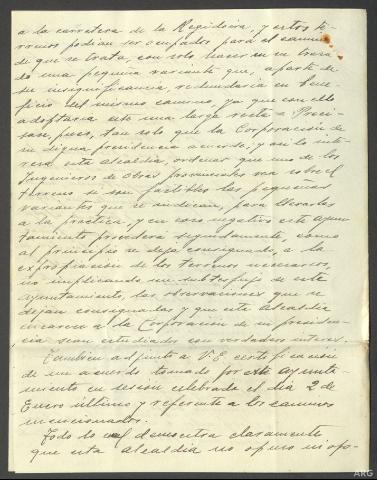 a la carretera de la Regidoira, y estos te-
rrenos podian ser ocupados para el camino
de que se trata, con solo hacer en su traza-
do una pequeña variante que, aparte de
su insignificancia, redundaria en bene-
ficio del mismo camino, ya que con ello
adoptaria este una larga recta = Preci-
sase, pues, tan solo que la Corporación de
su digna presidencia acuerde, y asi lo inte-
resa esta Alcaldia, ordenar que uno de los
Ingenieros de Obras provinciales vea sobre el
terreno si son factibles las pequeñas
variantes que se indican, para llevarlas
a la practica y en caso negativo este ayun-
tamiento procederá seguidamente, como
al principio se deja consignado, a la
expropiación de los terrenos necesarios,
no implicando un subterfujio de este
ayuntamiento, las observaciones que se
dejan consignadas y que esta Alcaldia
encarece a la Corporación de su presiden-
cia sean estudiadas con verdadero interes.
Tambien adjunto a V.E. certificación
de un acuerdo tomado por este Ayunta-
miento en sesión celebrada el dia 2 de
Enero último y referente a los caminos
mencionados.
Todo lo cual demuestra claramente
que esta alcaldia no opuso ni opo-
ARG